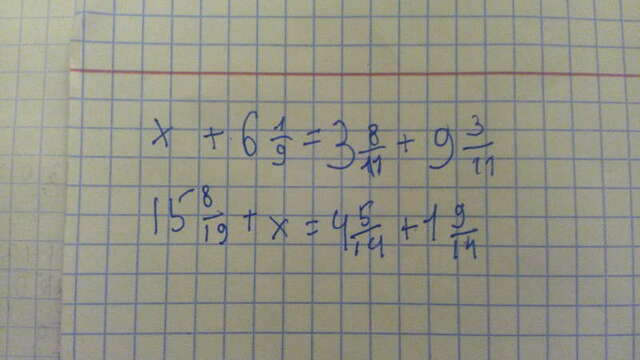 x + 6 1/9 = 3 8/11 + 9 3/11
15 8/19 + x = 4 5/14 + 1 9/14